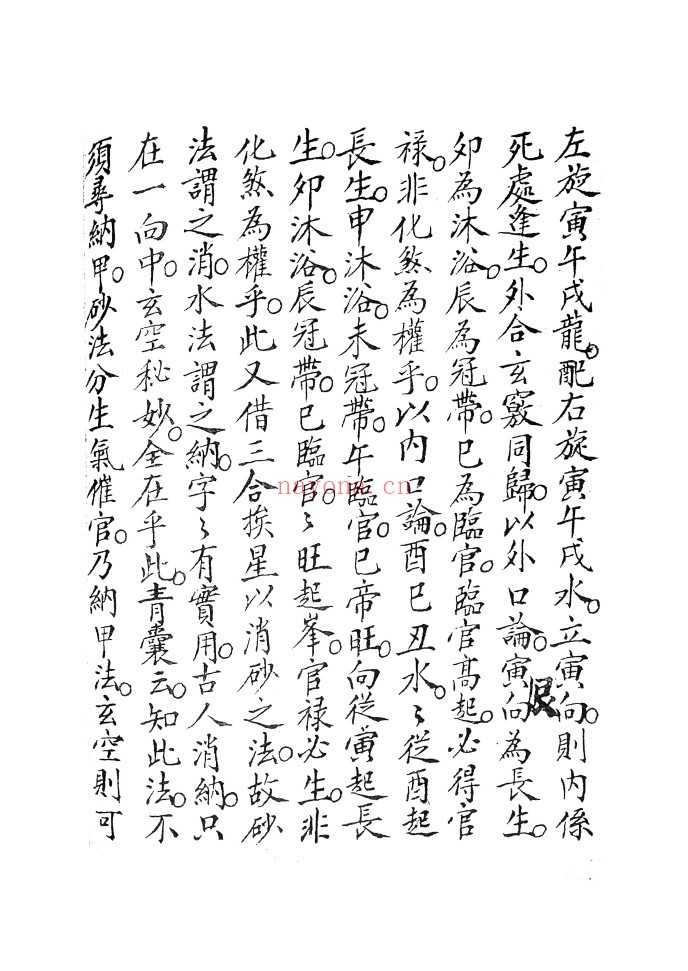 左旋寅午戌龍。配右旋寅午戌水。立寅向。則内係
死處逢生。外合玄竅同歸。以外口論。寅向為長生。
艮
卯為沐浴。辰為冠帶。巳為臨官。臨官高起。必得官
禄。非化煞為權乎。以内口論。酉巳丑水。〻從酉起
長生。申沐浴。未冠帶。午臨官。巳帝旺。向從寅起長
生。卯沐浴。辰冠帶。巳臨官。〻旺起峯。官禄必生。非
化煞為權乎。此又借三合挨星以消砂之法。故砂
法謂之消。水法謂之納。字〻有實用。古人消納。只
在一向中。玄空秘妙。全在乎此。青囊云。知此法。不
須尋納甲。砂法分生氣催官。乃納甲法。玄空則可
nayona.cn